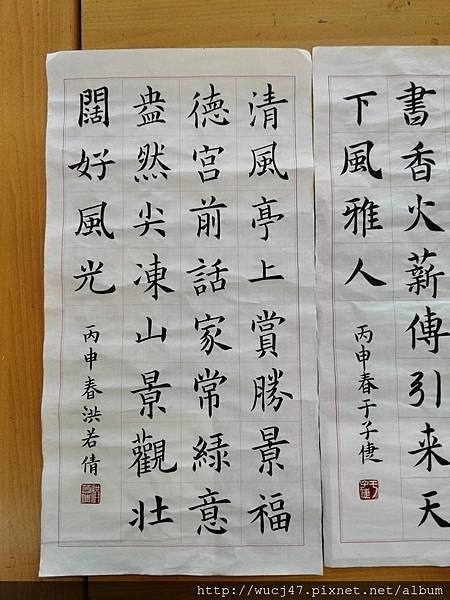 書香火薪傳引来天
下風雅人
丙申春于子倢
清風亭上賞勝景福
德宮前話家常綠意
盎然尖凍山景觀壯
闊好風光
丙申春洪若倩
http://wucj47.pixnet.net/album